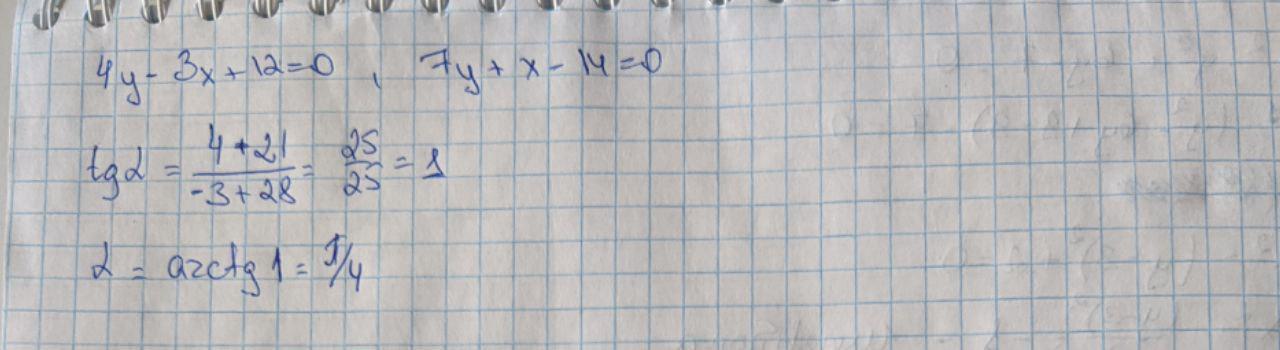 4y - 3x + 12 = 0 , 7y + x - 14 = 0
tg α = (4 + 21)/(-3 + 28) = 25/25 = 1
α = arctg 1 = π/4